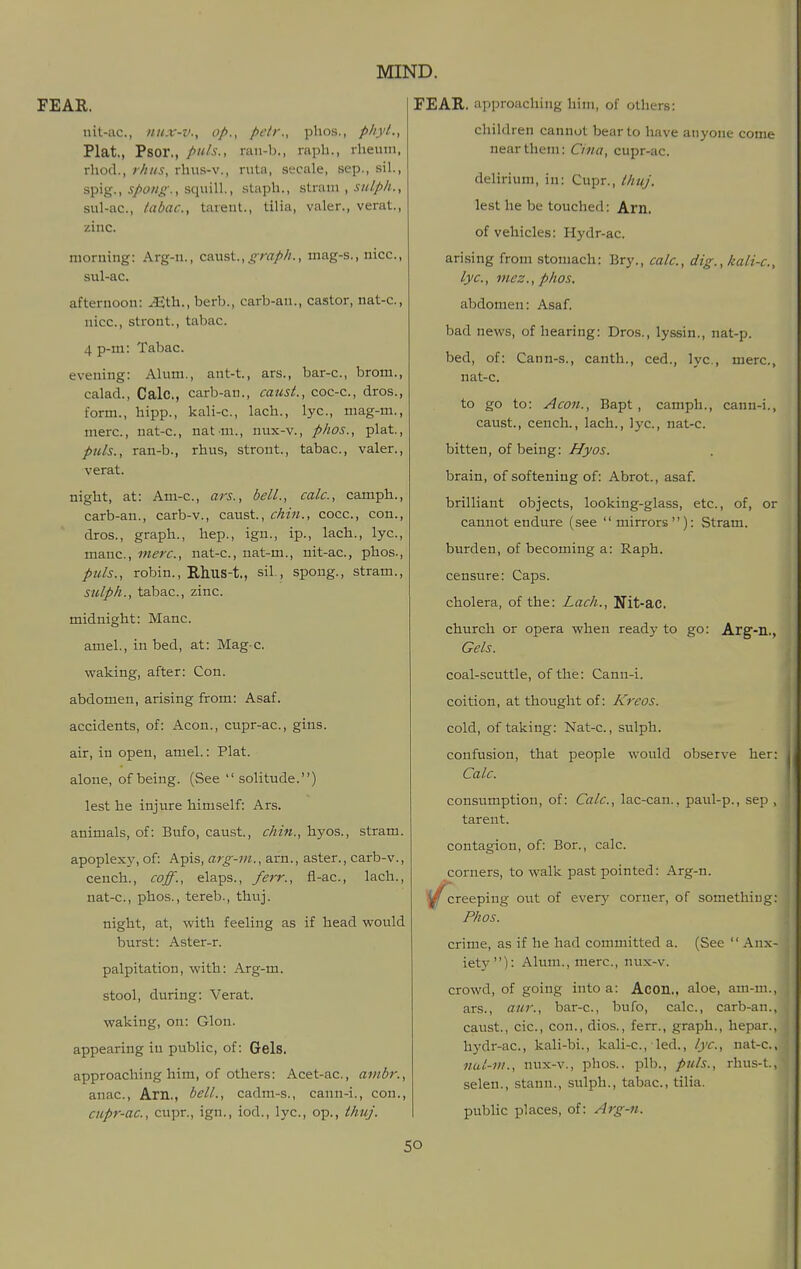 MIND.
FEAR.
nit-ac., nux-v., op., petr., phos., phyt.,
Plat., Psor., puls., ran-b., raph., rheum,
rhod., rhus, rhus-v., ruta, secale, sep., sil.,
spig., spong., squill., staph., stram , sulph.,
sul-ac., tabac., tarent., tilia, valer., verat.,
zinc.
morning: Arg-n., caust., graph., mag-s., nicc.,
sul-ac.
afternoon: Æth., berb., carb-an., castor, nat-c.,
nicc., stront., tabac.
4 p-m: Tabac.
evening: Alum., ant-t., ars., bar-c., brom.,
calad., Calc., carb-an., caust., coc-c., dros.,
form., hipp., kali-c., lach., lyc., mag-m.,
merc., nat-c., nat-m., nux-v., phos., plat.,
puls., ran-b., rhus, stront., tabac., valer.,
verat.
night, at: Am-c., ars., bell., calc., camph.,
carb-an., carb-v., caust., chin., cocc., con.,
dros., graph., hep., ign., ip., lach., lyc.,
manc., merc., nat-c., nat-m., nit-ac., phos.,
puls., robin., Rhus-t., sil., spong., stram.,
sulph., tabac., zinc.
midnight: Manc.
amel., in bed, at: Mag-c.
waking, after: Con.
abdomen, arising from: Asaf.
accidents, of: Acon., cupr-ac., gins.
air, in open, amel.: Plat.
alone, of being. (See "solitude.")
lest he injure himself: Ars.
animals, of: Bufo, caust., chin., hyos., stram.
apoplexy, of: Apis, arg-m., arn., aster., carb-v.,
cench., coff., elaps., ferr., fl-ac., lach.,
nat-c., phos., tereb., thuj.
night, at, with feeling as if head would
burst: Aster-r.
palpitation, with: Arg-m.
stool, during: Verat.
waking, on: Glon.
appearing in public, of: Gels.
approaching him, of others: Acet-ac., ambr.,
anac., Arn., bell., cadm-s., cann-i., con.,
cupr-ac., cupr., ign., iod., lyc., op., thuj.
FEAR. approaching him, of others:
children cannot bear to have anyone come
near them: Cina, cupr-ac.
delirium, in: Cupr., thuj.
lest he be touched: Arn.
of vehicles: Hydr-ac.
arising from stomach: Bry., calc., dig., kali-c.,
lyc., mez., phos.
abdomen: Asaf.
bad news, of hearing: Dros., lyssin., nat-p.
bed, of: Cann-s., canth., ced., lyc., merc.,
nat-c.
to go to: Acon., Bapt , camph., cann-i.,
caust., cench., lach., lyc., nat-c.
bitten, of being: Hyos.
brain, of softening of: Abrot., asaf.
brilliant objects, looking-glass, etc., of, or
cannot endure (see "mirrors"): Stram.
burden, of becoming a: Raph.
censure: Caps.
cholera, of the: Lach., Nit-ac.
church or opera when ready to go: Arg-n.,
Gels.
coal-scuttle, of the: Cann-i.
coition, at thought of: Kreos.
cold, of taking: Nat-c., sulph.
confusion, that people would observe her:
Calc.
consumption, of: Calc., lac-can., paul-p., sep ,
tarent.
contagion, of: Bor., calc.
corners, to walk past pointed: Arg-n.
creeping out of every corner, of something:
Phos.
crime, as if he had committed a. (See "Anx-
iety"): Alum., merc., nux-v.
crowd, of going into a: Acon., aloe, am-m.,
ars., aur., bar-c., bufo, calc., carb-an.,
caust., cic., con., dios., ferr., graph., hepar.,
hydr-ac., kali-bi., kali-c., led., lyc., nat-c.,
nat-m., nux-v., phos.. plb., puls., rhus-t.,
selen., stann., sulph., tabac., tilia.
public places, of: Arg-n.
50